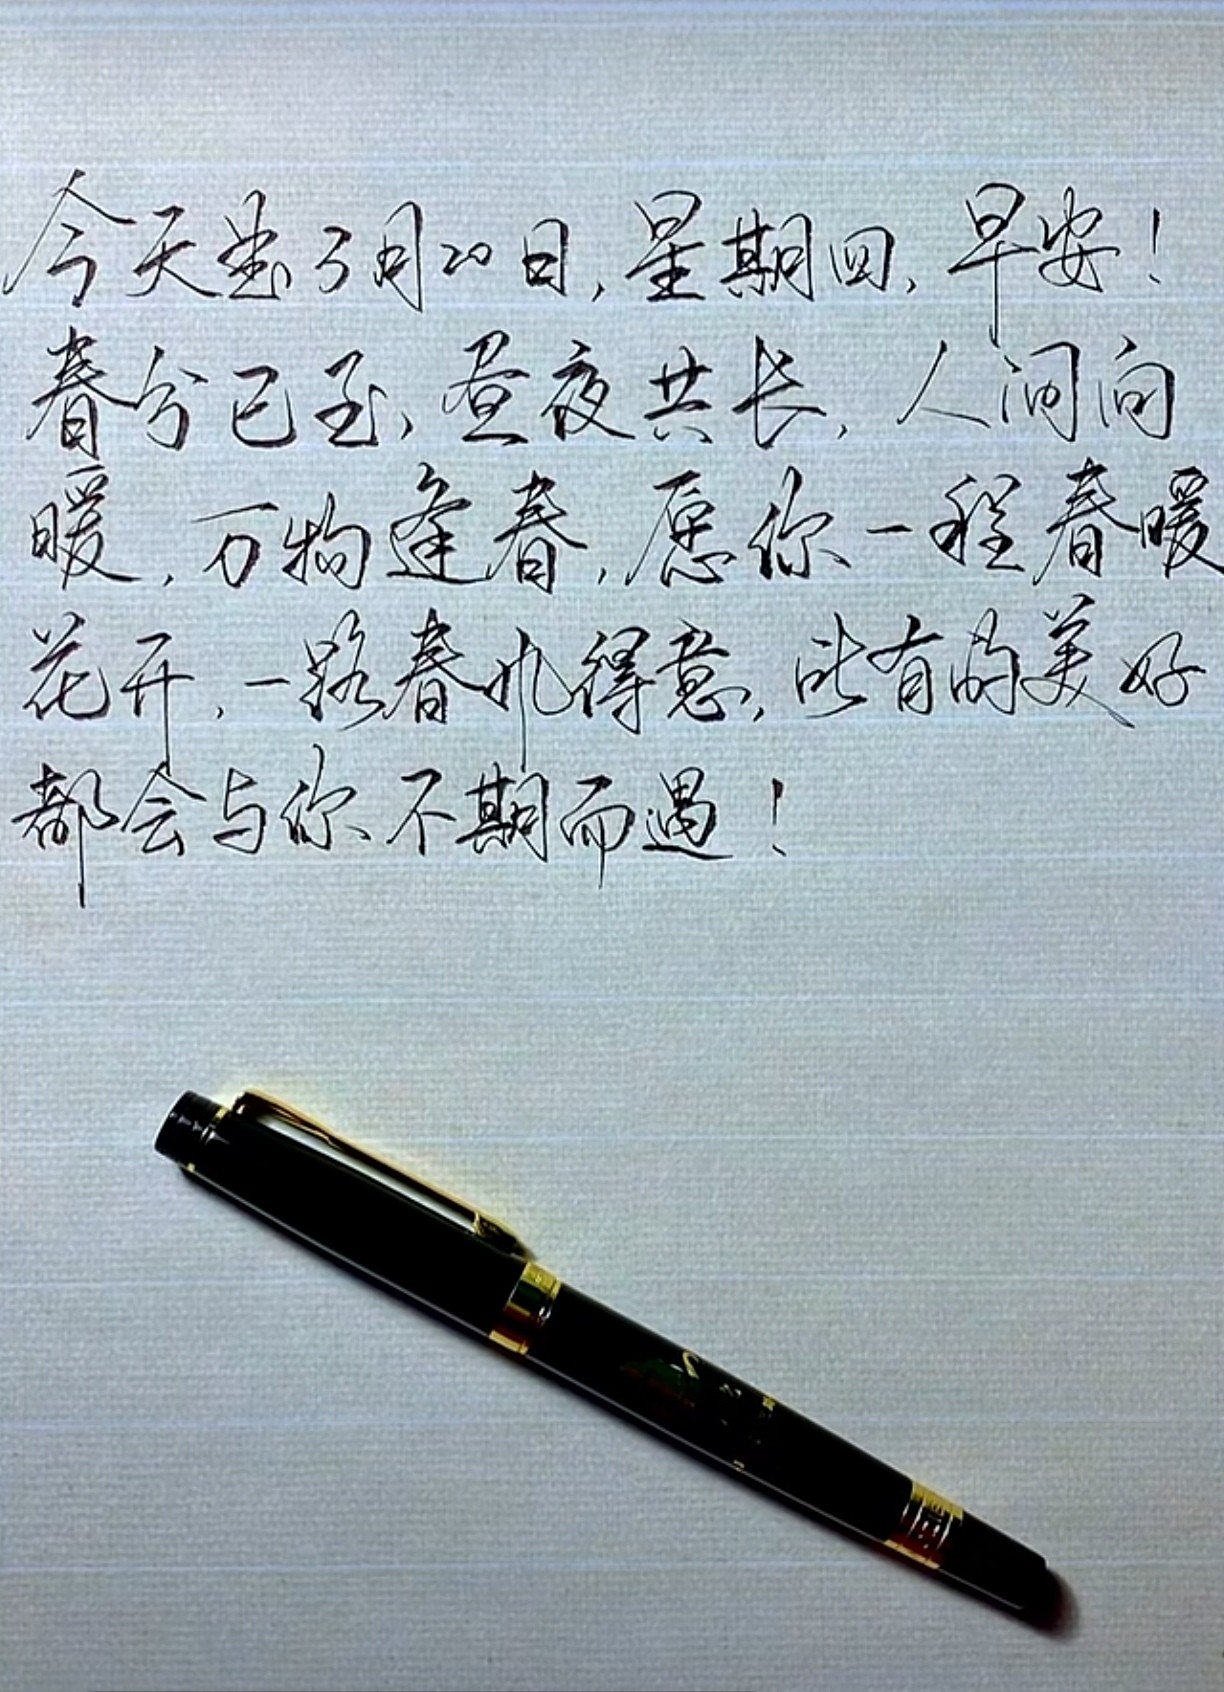 今天是3月20日,星期四,早安!
春分已至,昼夜共长,人间向
暖,万物逢春,愿你一程春暖
花开,一路春风得意,所有的美好
都会与你不期而遇!